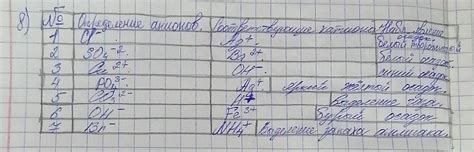 8) № Определение анионов. Соответствующие катиона Набл. явлен.
1 Cl⁻ Ag⁺ белый творожистый осадок
2 SO₄⁻² Ba²⁺ белый осадок
3 Cu²⁺ OH⁻ синий осадок
4 PO₄³⁻ Ag⁺ ярко жёлтый осадок.
5 CO₃²⁻ H⁺ Выделение газа.
6 OH⁻ Fe³⁺ бурый осадок
7 Br⁻ NH₄⁺ Выделение запаха аммиака.